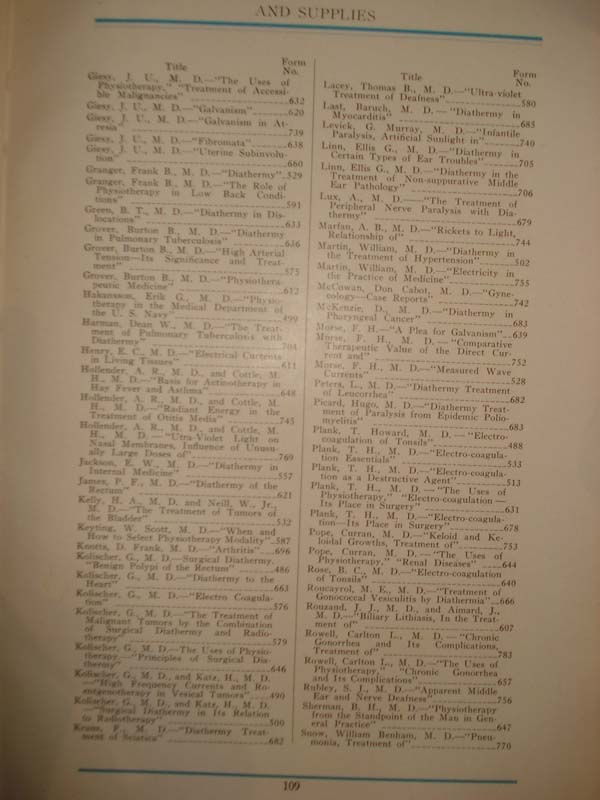 AND SUPPLIES
Title Form
No.
Giesy, J. U., M. D.—"The Uses of
Physiotherapy," "Treatment of Accessi-
ble Malignancies" 632
Giesy, J. U., M. D.—"Galvanism" 620
Giesy, J. U., M. D.—"Galvanism in At-
resia" 739
Giesy, J. U., M. D.—"Fibromata" 638
Giesy, J. U., M. D.—"Uterine Subinvolu-
tion" 660
Granger, Frank B., M. D.—"Diathermy" 529
Granger, Frank B., M. D.—"The Role of
Physiotherapy in Low Back Condi-
tions" 591
Green, B. T., M. D.—"Diathermy in Dis-
locations" 633
Grover, Burton B., M. D.—"Diathermy
in Pulmonary Tuberculosis" 636
Grover, Burton B., M. D.—"High Arterial
Tension—Its Significance and Treat-
ment" 575
Grover, Burton B., M. D.—"Physiothera-
peutic Medicine" 612
Hakansson, Erik G., M. D.—"Physio-
therapy in the Medical Department of
the U. S. Navy" 499
Harman, Dean W., M. D.—"The Treat-
ment of Pulmonary Tuberculosis with
Diathermy" 704
Henry, E. C., M. D.—"Electrical Currents
in Living Tissues" 611
Hollender, A. R., M. D., and Cottle, M.
H., M. D.—"Basis for Actinotherapy in
Hay Fever and Asthma" 648
Hollender, A. R., M. D., and Cottle, M.
H., M. D.—"Radiant Energy in the
Treatment of Otitis Media" 745
Hollender, A. R., M. D., and Cottle, M.
H., M. D.—"Utra-Violet Light on
Nasal Membranes, Influence of Unusu-
ally Large Doses of" 769
Jackson, E. W., M. D.—"Diathermy in
Internal Medicine" 557
James, P. F., M. D.—"Diathermy of the
Rectum" 621
Kelly, H. A., M. D. and Neill, W., Jr.,
M. D.—"The Treatment of Tumors of
the Bladder" 532
Keyting, W. Scott, M. D.—"When and
How to Select Physiotherapy Modality" 587
Knotts, D. Frank, M. D.—"Arthritis" 696
Kolischer, G., M. D.—Surgical Diathermy,
"Benign Polypi of the Rectum" 486
Kolischer, G., M. D.—"Diathermy to the
Heart" 663
Kolischer, G., M. D.—"Electro Coagula-
tion" 576
Kolischer, G., M. D.—"The Treatment of
Malignant Tumors by the Combination
of Surgical Diathermy and Radio-
therapy" 579
Kolischer, G., M. D.—The Uses of Physio-
therapy,—"Principles of Surgical Dia-
thermy" 646
Kolischer, G., M. D., and Katz, H., M. D.
—"High Frequency Currents and Ro-
entgenotherapy in Vesical Tumors" 490
Kolischer, G., M. D., and Katz, H., M. D.
—"Surgical Diathermy in Its Relation
to Radiotherapy" 500
Kraus, F., M. D.—"Diathermy Treat-
ment of Sciatica" 682
Title Form
No.
Lacey, Thomas B., M. D.—"Ultra-violet
Treatment of Deafness" 580
Last, Baruch, M. D.—"Diathermy in
Myocarditis" 685
Levick, G. Murray, M. D.—"Infantile
Paralysis, Artificial Sunlight in" 740
Linn, Ellis G., M. D.—"Diathermy in
Certain Types of Ear Troubles" 705
Linn, Ellis G., M. D.—"Diathermy in the
Treatment of Non-suppurative Middle
Ear Pathology" 706
Lux, A., M. D.——"The Treatment of
Peripheral Nerve Paralysis with Dia-
thermy" 679
Marfan, A. B., M. D.—"Rickets to Light,
Relationship of" 744
Martin, William, M. D.—"Diathermy in
the Treatment of Hypertension" 502
Martin, William, M. D.—"Electricity in
the Practice of Medicine" 755
McCowan, Don Cabot, M. D.—"Gyne-
cology—Case Reports" 742
McKenzie, D., M. D.—"Diathermy in
Pharyngeal Cancer" 683
Morse, F. H.—"A Plea for Galvanism" 639
Morse, F. H., M. D.—"Comparative
Therapeutic Value of the Direct Cur-
rent and" 752
Morse, F. H., M. D.—"Measured Wave
Currents" 528
Peters, L., M. D.—"Diathermy Treatment
of Leucorrhea" 682
Picard, Hugo, M. D.—"Diathermy Treat-
ment of Paralysis from Epidemic Polio-
myelitis" 683
Plank, T. Howard, M. D.—"Electro-
coagulation of Tonsils" 488
Plank, T. H., M. D.—"Electro-coagula-
tion Essentials" 533
Plank, T. H., M. D.—"Electro-coagula-
tion as a Destructive Agent" 513
Plank, T. H., M. D.—"The Uses of
Physiotherapy," "Electro-coagulation—
Its Place in Surgery" 631
Plank, T. H., M. D.—"Electro-coagula-
tion—Its Place in Surgery" 678
Pope, Curran, M. D.—"Keloid and Ke-
loidal Growths, Treatment of" 753
Pope, Curran, M. D.—"The Uses of
Physiotherapy," "Renal Diseases" 644
Rose, B. C., M. D.—"Electro-coagulation
of Tonsils" 640
Roucayrol, M. E., M. D.—"Treatment of
Gonococcal Vesiculitis by Diathermia" 666
Rouzaud, J. J., M. D., and Aimard, J.,
M. D.—"Biliary Lithiasis, In the Treat-
ment of" 607
Rowell, Carlton L., M. D.—"Chronic
Gonorrhea and Its Complications,
Treatment of" 783
Rowell, Carlton L., M. D.—"The Uses of
Physiotherapy," "Chronic Gonorrhea
and Its Complications" 657
Rubley, S. J., M. D.—"Apparent Middle
Ear and Nerve Deafness" 756
Sherman, B. H., M. D.—"Physiotherapy
from the Standpoint of the Man in Gen-
eral Practice" 647
Snow, William Benham, M. D.—"Pneu-
monia, Treatment of" 770
109